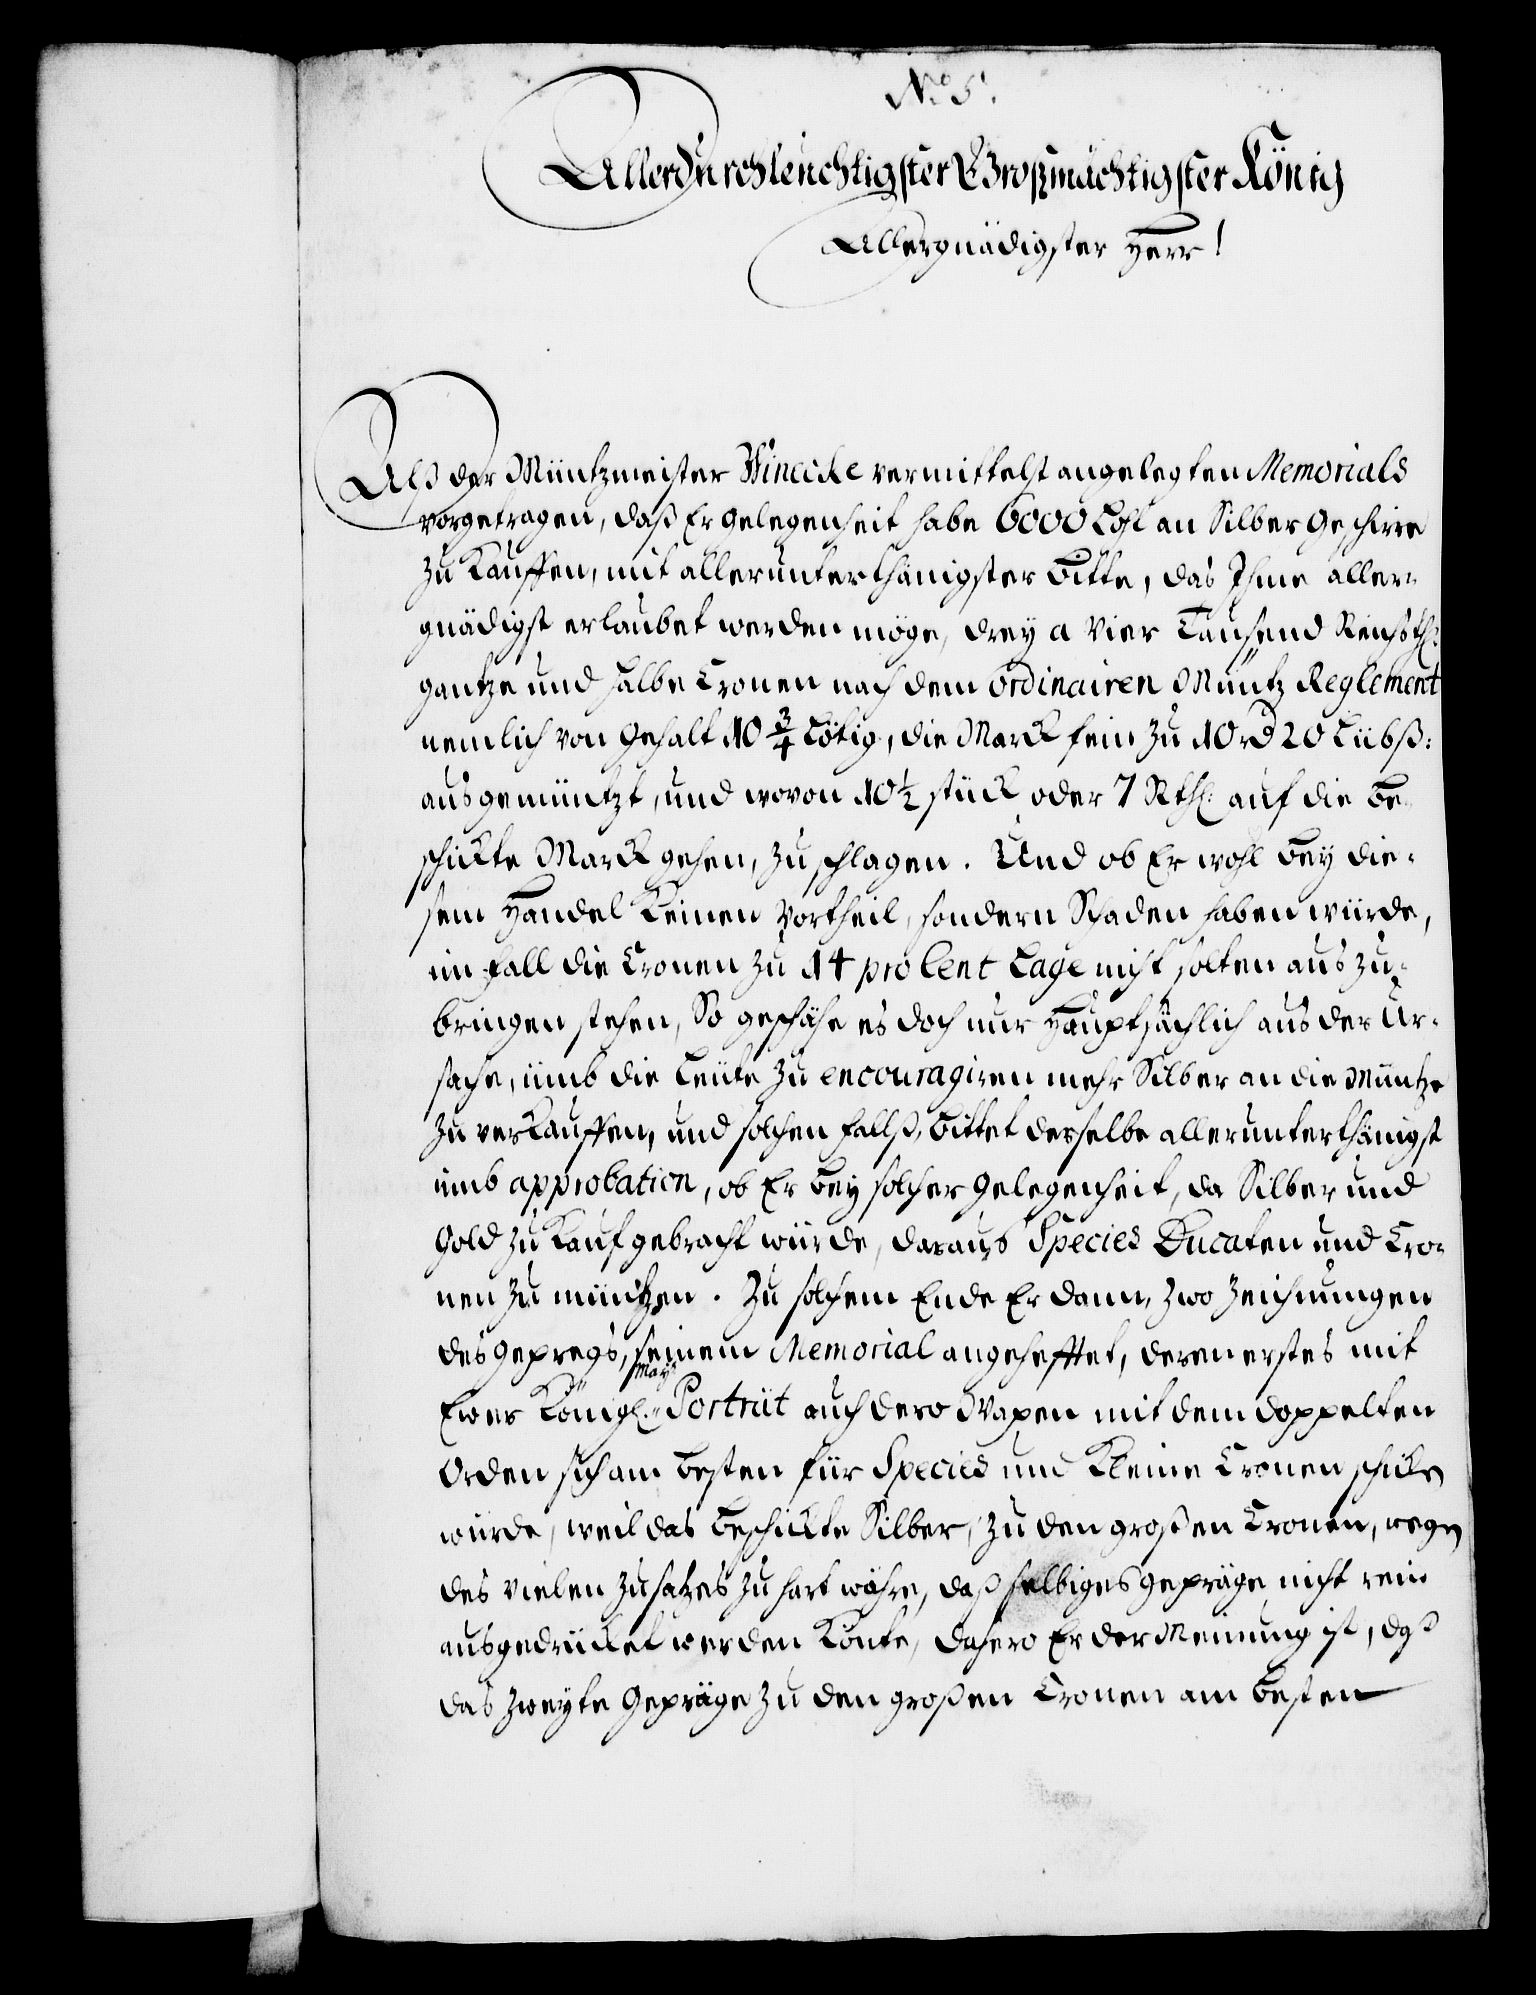 No 5.
Allerdurchleuchtigster Großmächtigster König
Allergnädigster Herr!
Alß der Müntzmeister Winecke vermittelst angelegten Memorials
vorgetragen, daß Er Gelegenheit habe 6000 Loht an Silber Geschirre
zu Kauffen, mit allerunterthänigster Bitte, das Ihme aller-
gnädigst erlaubet werden möge, drey a Vier Tausend Reichsthl:
gantze und halbe Cronen nach dem ordinairen Müntz Reglement
nemlich von Gehalt 10 3/4 Lötig, die Marck fein zu 10 rd 20 Lübß:
ausgemüntzt, und wovon 10 1/2 stück oder 7 Rthl: auf die Be-
schickte Marck gehen, zu schlagen. Und ob Er wohl bey die-
sem Handel Keinen Vortheil, sondern Schaden haben würde,
im fall die Cronen zu 14 pro Cent Lage nicht solten aus zu-
bringen stehen, So geschähe es doch nur Hauptsächlich aus der Ur-
sache, ümb die Leüte zu encouragiren mehr Silber an die Müntze
zu verkauffen, und solchen falls, bittet derselbe allerunterthänigst
ümb approbation, ob Er bey solcher Gelegenheit, da Silber und
Gold zu Kauf gebracht würde, daraus Species Ducaten und Cro-
nen zu müntzen. Zu solchem Ende Er dann, zwo Zeichnungen
des Gepregs, seinem Memorial angehefftet, deren erstes mit
Ewer Königl: May: Portrüt auch dero Wapen mit dem doppelten
Orden sich am besten für Species und Kleine Cronen schicken
würde, weil das beschickte Silber, zu den großen Cronen, wegen
des vielen Zusatzes zu hart währe, daß selbiges Gepräge nicht rein
ausgedrücket werden Könte, dahero Er der Meinung ist, daß
das Zweyte Gepräge zu den großen Cronen am besten